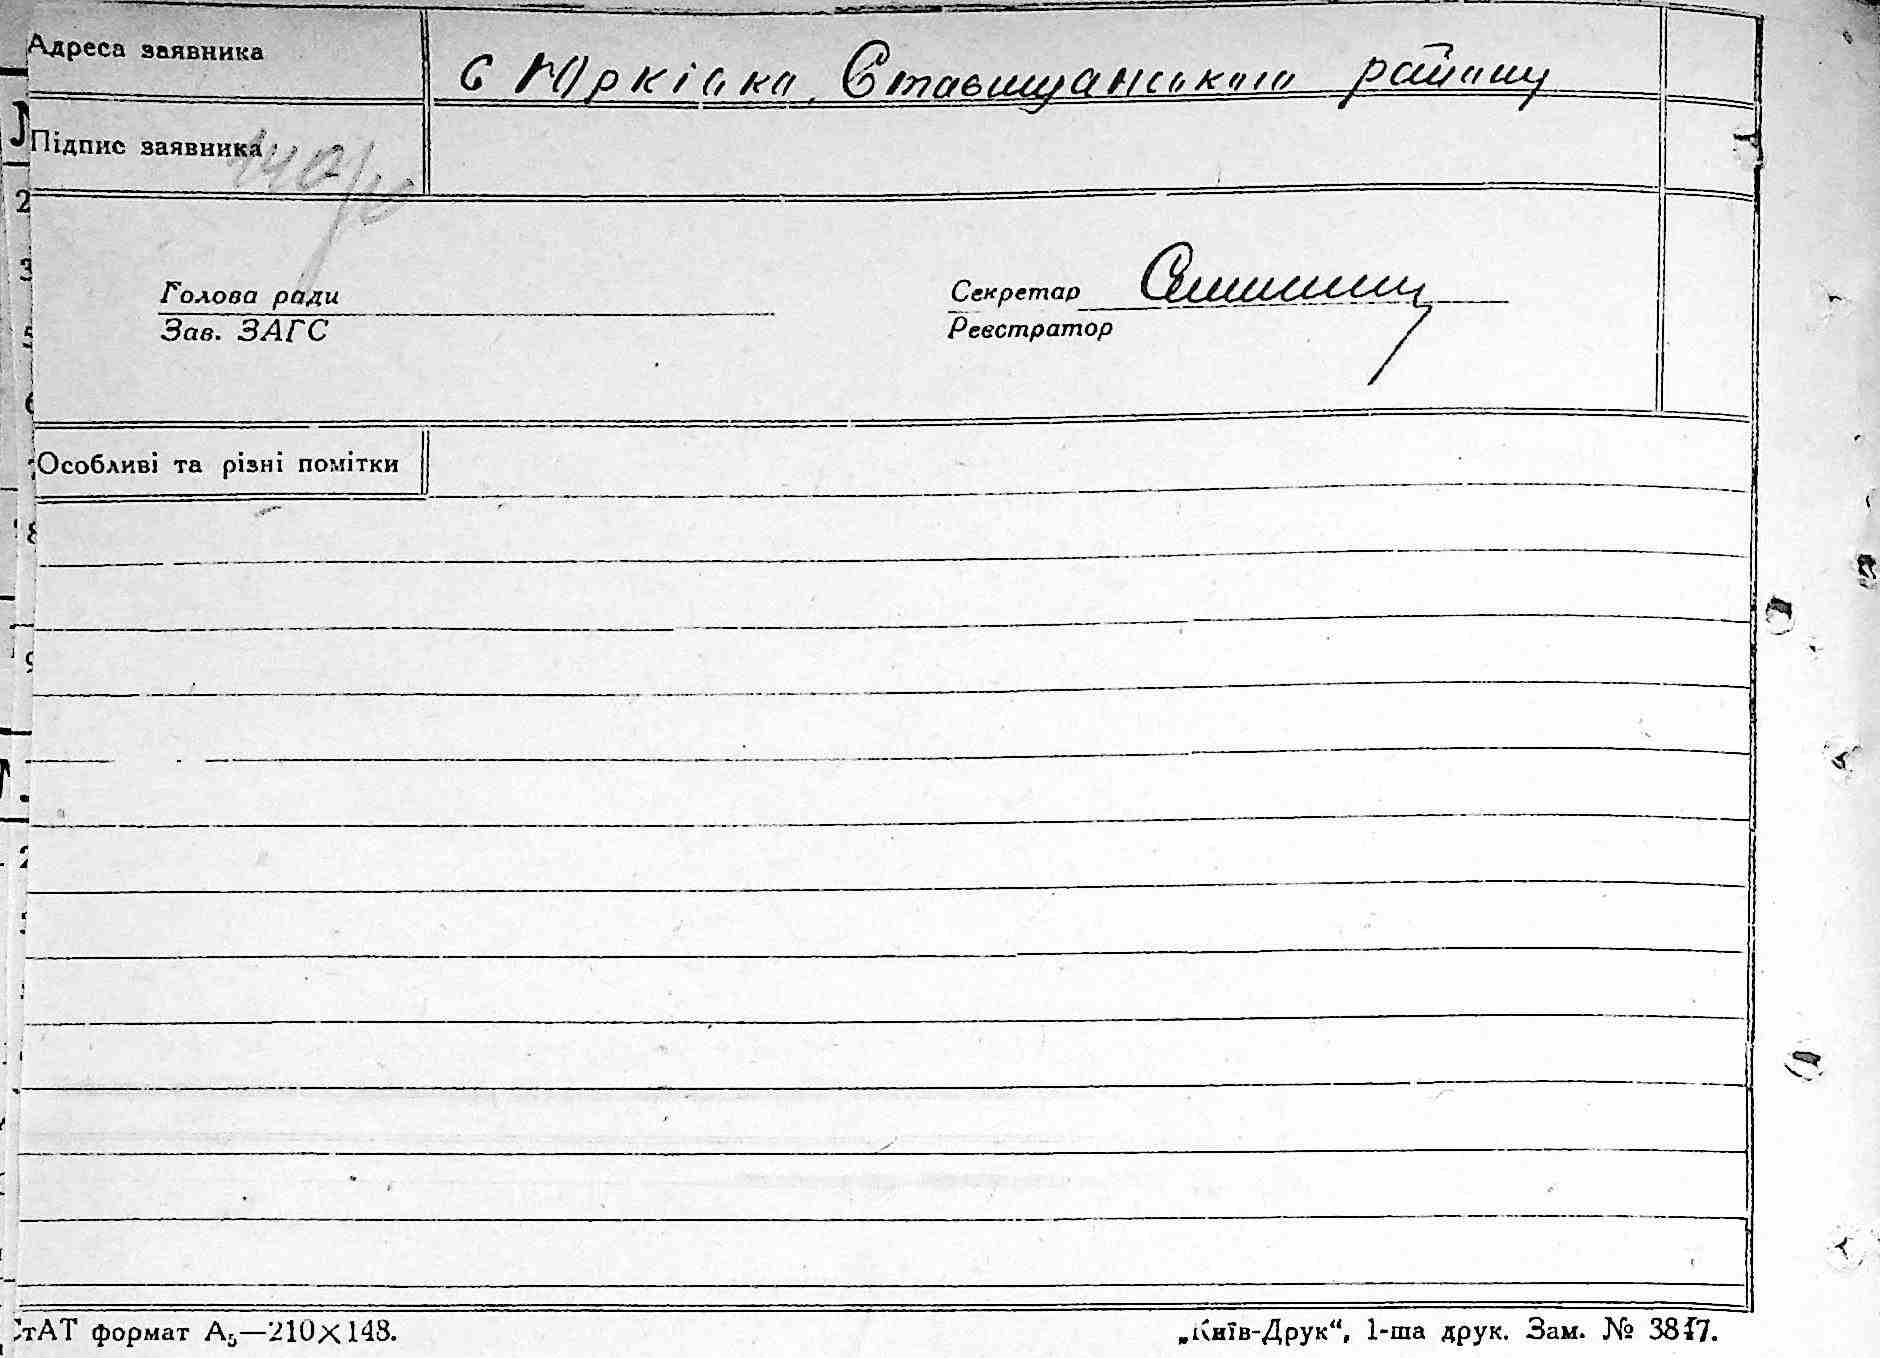 Адреса заявника с Юрківка, Ставищанського району
Підпис заявника
Голова ради
Секретар
Зав. ЗАГС
Реєстратор
Особливі та різні помітки
СтАТ формат А₅—210×148.
„Київ-Друк“, 1-ша друк. Зам. № 3817.